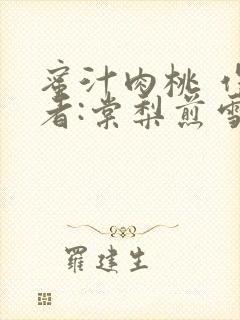 蜜汁肉桃 作
者:棠梨煎雪
羅建生